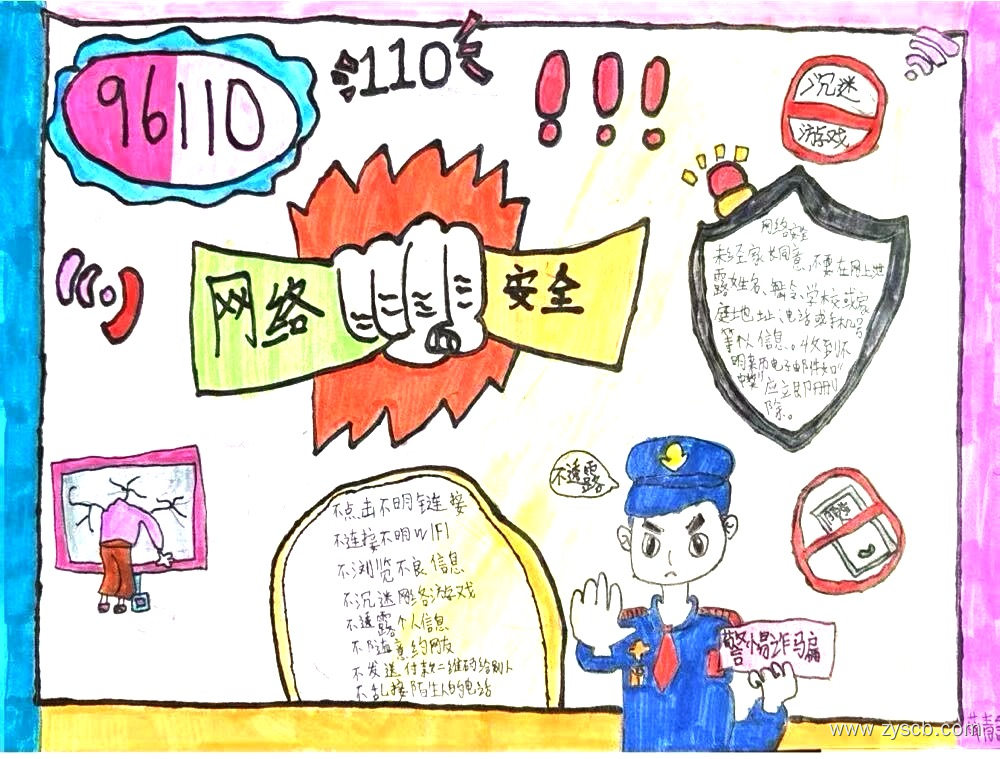 96110
110
!!!
沉迷
游戏
网络
安全
网络安全
未经家长同意,不要在网上泄
露姓名、年令、学校或家
庭地址、电话或手机号
等私人信息。收到不
明来历电子邮件如
应立即删
除。
不透露
不点击不明链接
不连接不明WIFI
不浏览不良信息
不沉迷网络游戏
不透露个人信息
不随意约网友
不发送付款二维码给别人
不乱接陌生人的电话
警惕诈骗
www.zyscb.com